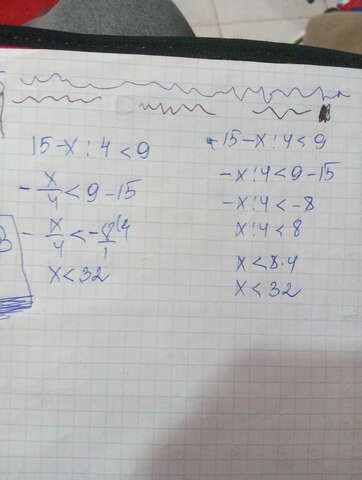 15-x:4<9
-x/4<9-15
-x/4<-8/1(4
x<32
15-x:4<9
-x:4<9-15
-x:4<-8
x:4<8
x<8·4
x<32